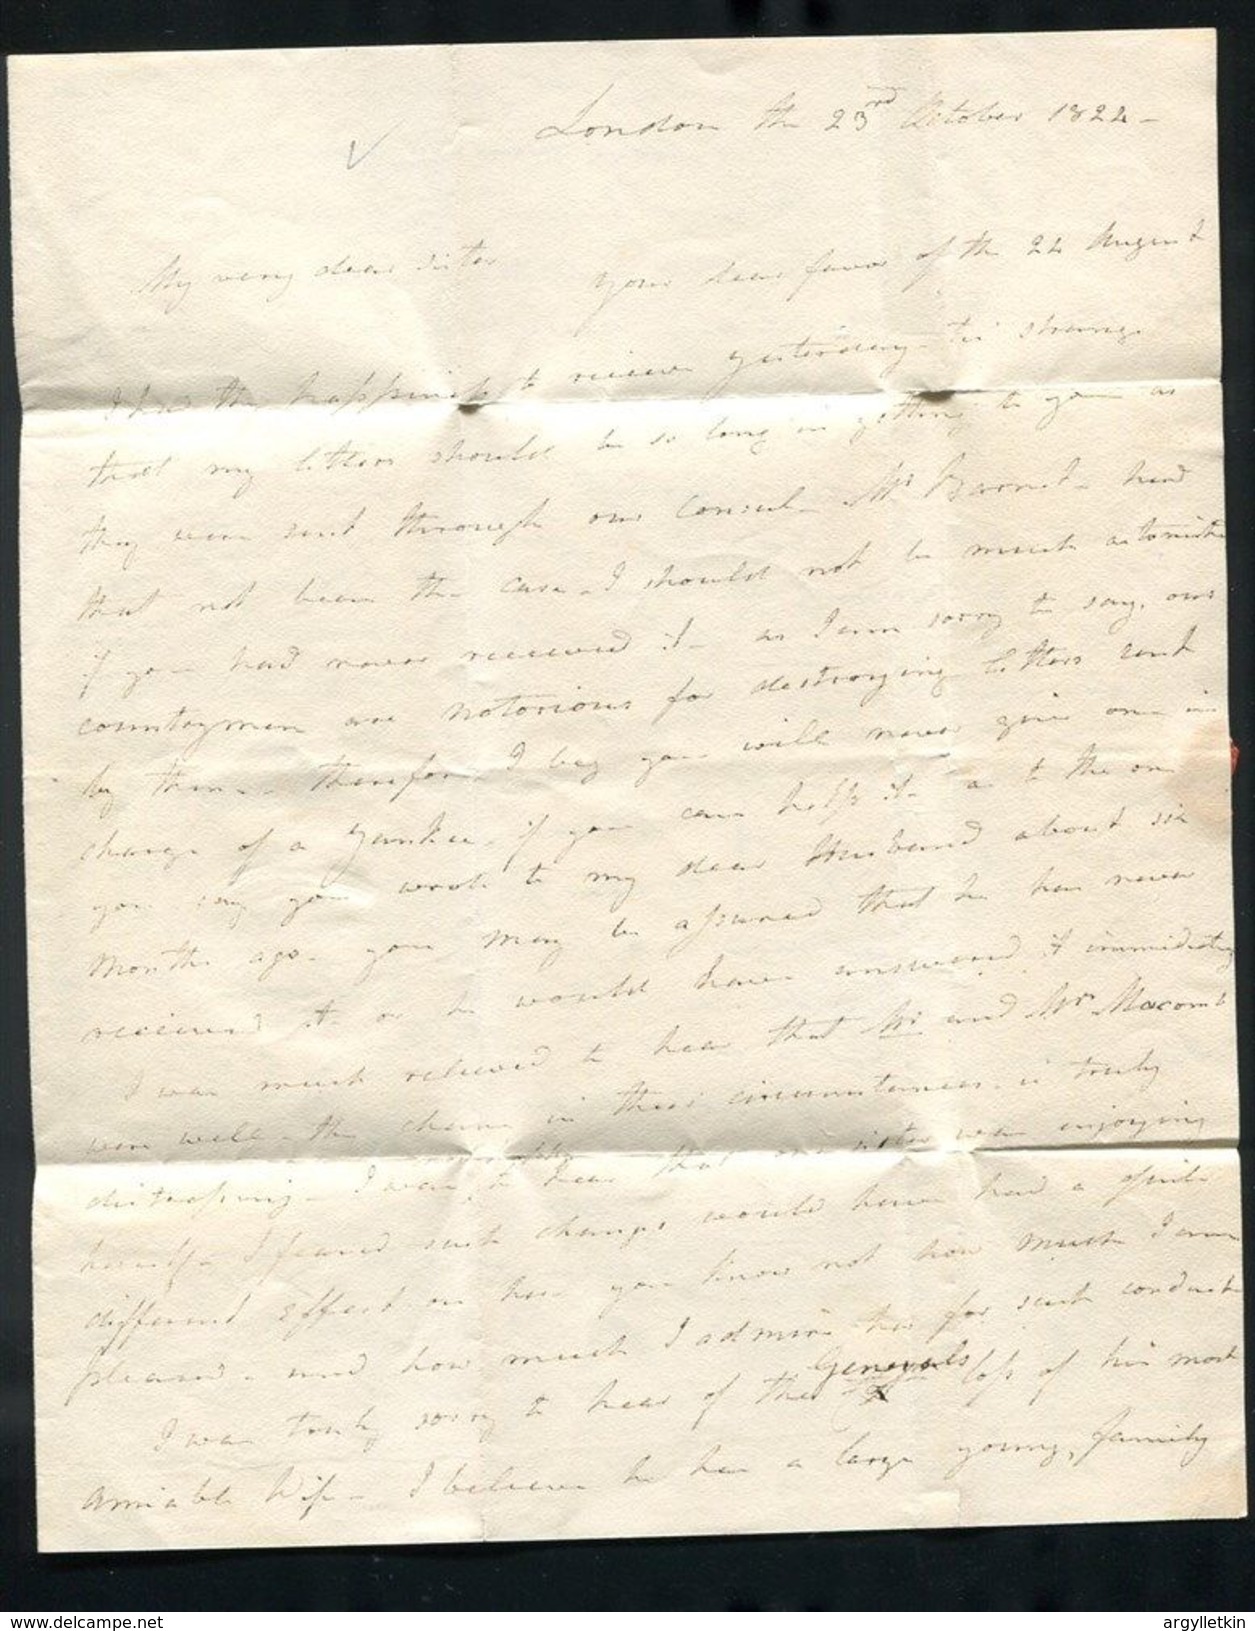 London the 23rd October 1822 -
My very dear Sister
Your dear favor of the 22 August
I had the happiness to receive yesterday - tis strange
that my letters should be so long in getting to you as
they were sent through our Consul - Mr Barnet - had
that not been the case - I should not be much astonished
if you had never received it - as I am sorry to say, our
countrymen are notorious for destroying letters sent
by them - therefore I beg you will never give one in
charge of a Yankee - if you can help it - as to the one
you say you wrote to my dear Husband about six
months ago - you may be assured that he has never
received it - or he would have answered it immediately
I was much relieved to hear that Mr and Mrs Macomb
were well - the change in their circumstances - is truly
distressing - I was to hear that our sister was enjoying
herself - I feared such change would have had a quite
different effect on her you know not how much I am
pleased - and how much I admire her for such conduct
I was truly sorry to hear of the Generals loss of his most
amiable Wife - I believe he has a large young family
argylletkin